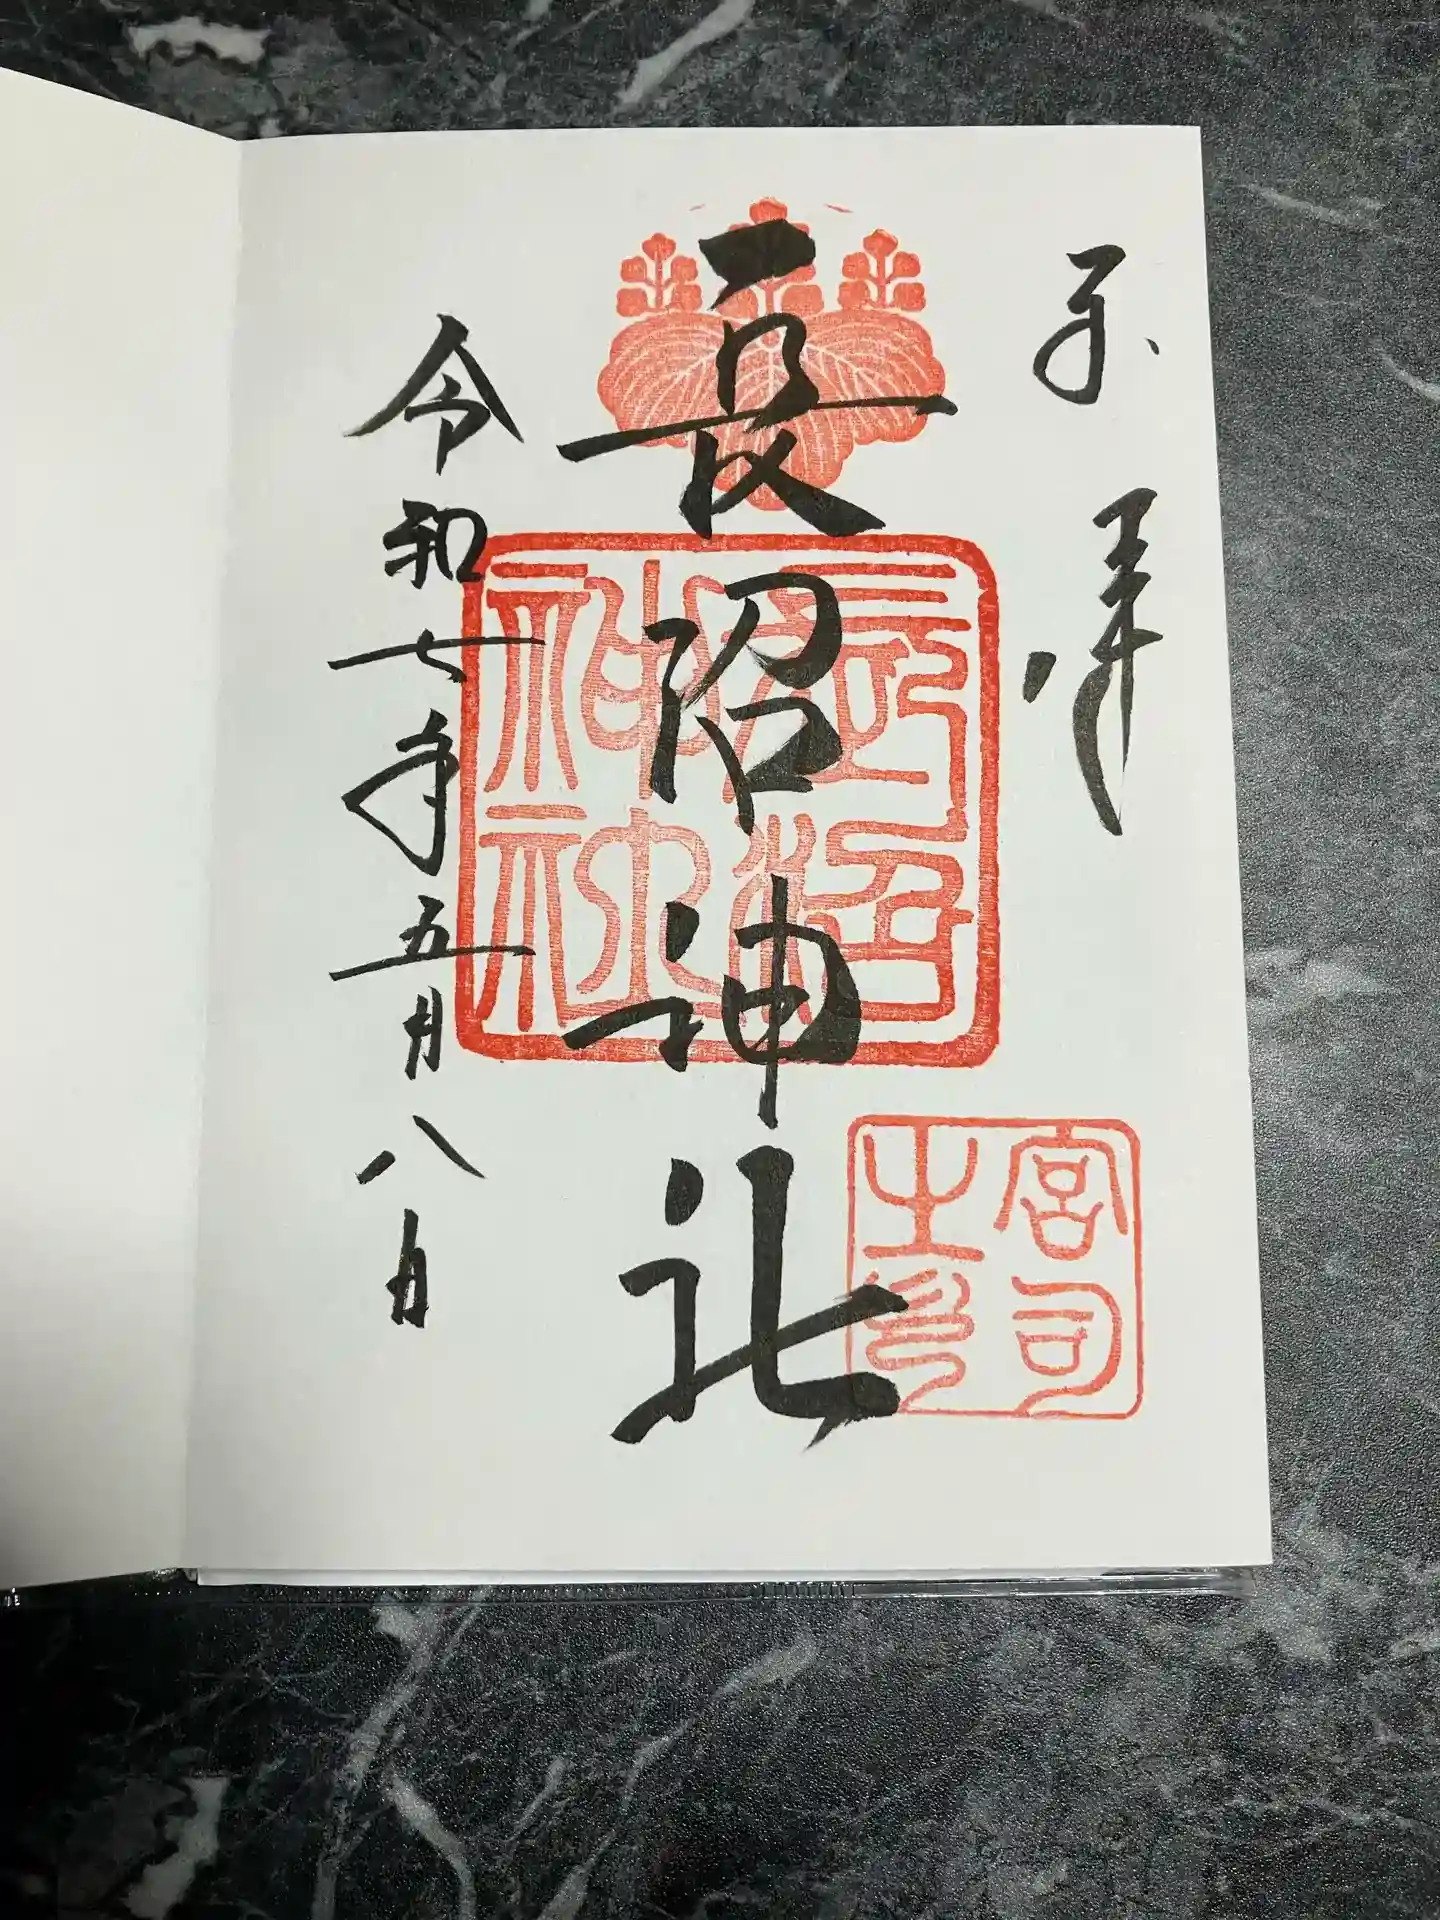 奉拝
長沼神社
令和七年五月八日
長沼
神社
宮司
之印